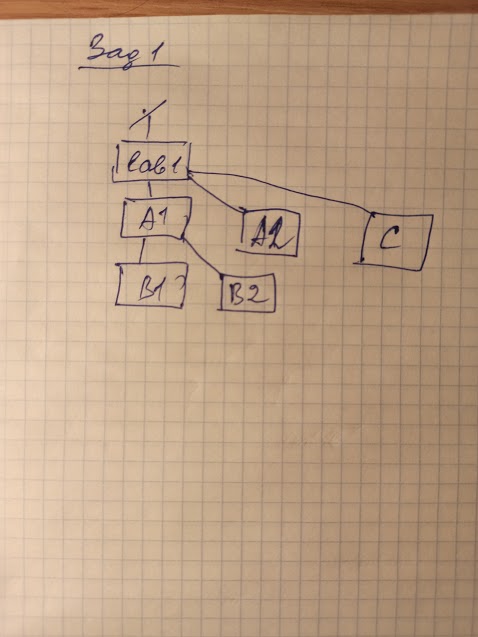 Зад 1
/
lab1
A1
A2
C
B1
B2